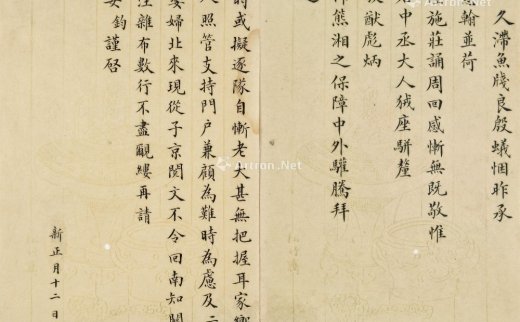 久滯魚牋良殷蟻悃昨承
翰並荷
施莊誦周回感慚無既敬惟
中丞大人絨座駢釐
猷彪炳
熊湘之保障中外驩騰拜
時或擬逐隊自慚老大甚無把握耳家鄉
人照管支持門户兼顧為難時為慮及二
婁婦北來現從子京閱文不令回南知關
注雜布數行不盡覼縷再請
安鈞謹啓
新正月十二日
Artron.Net